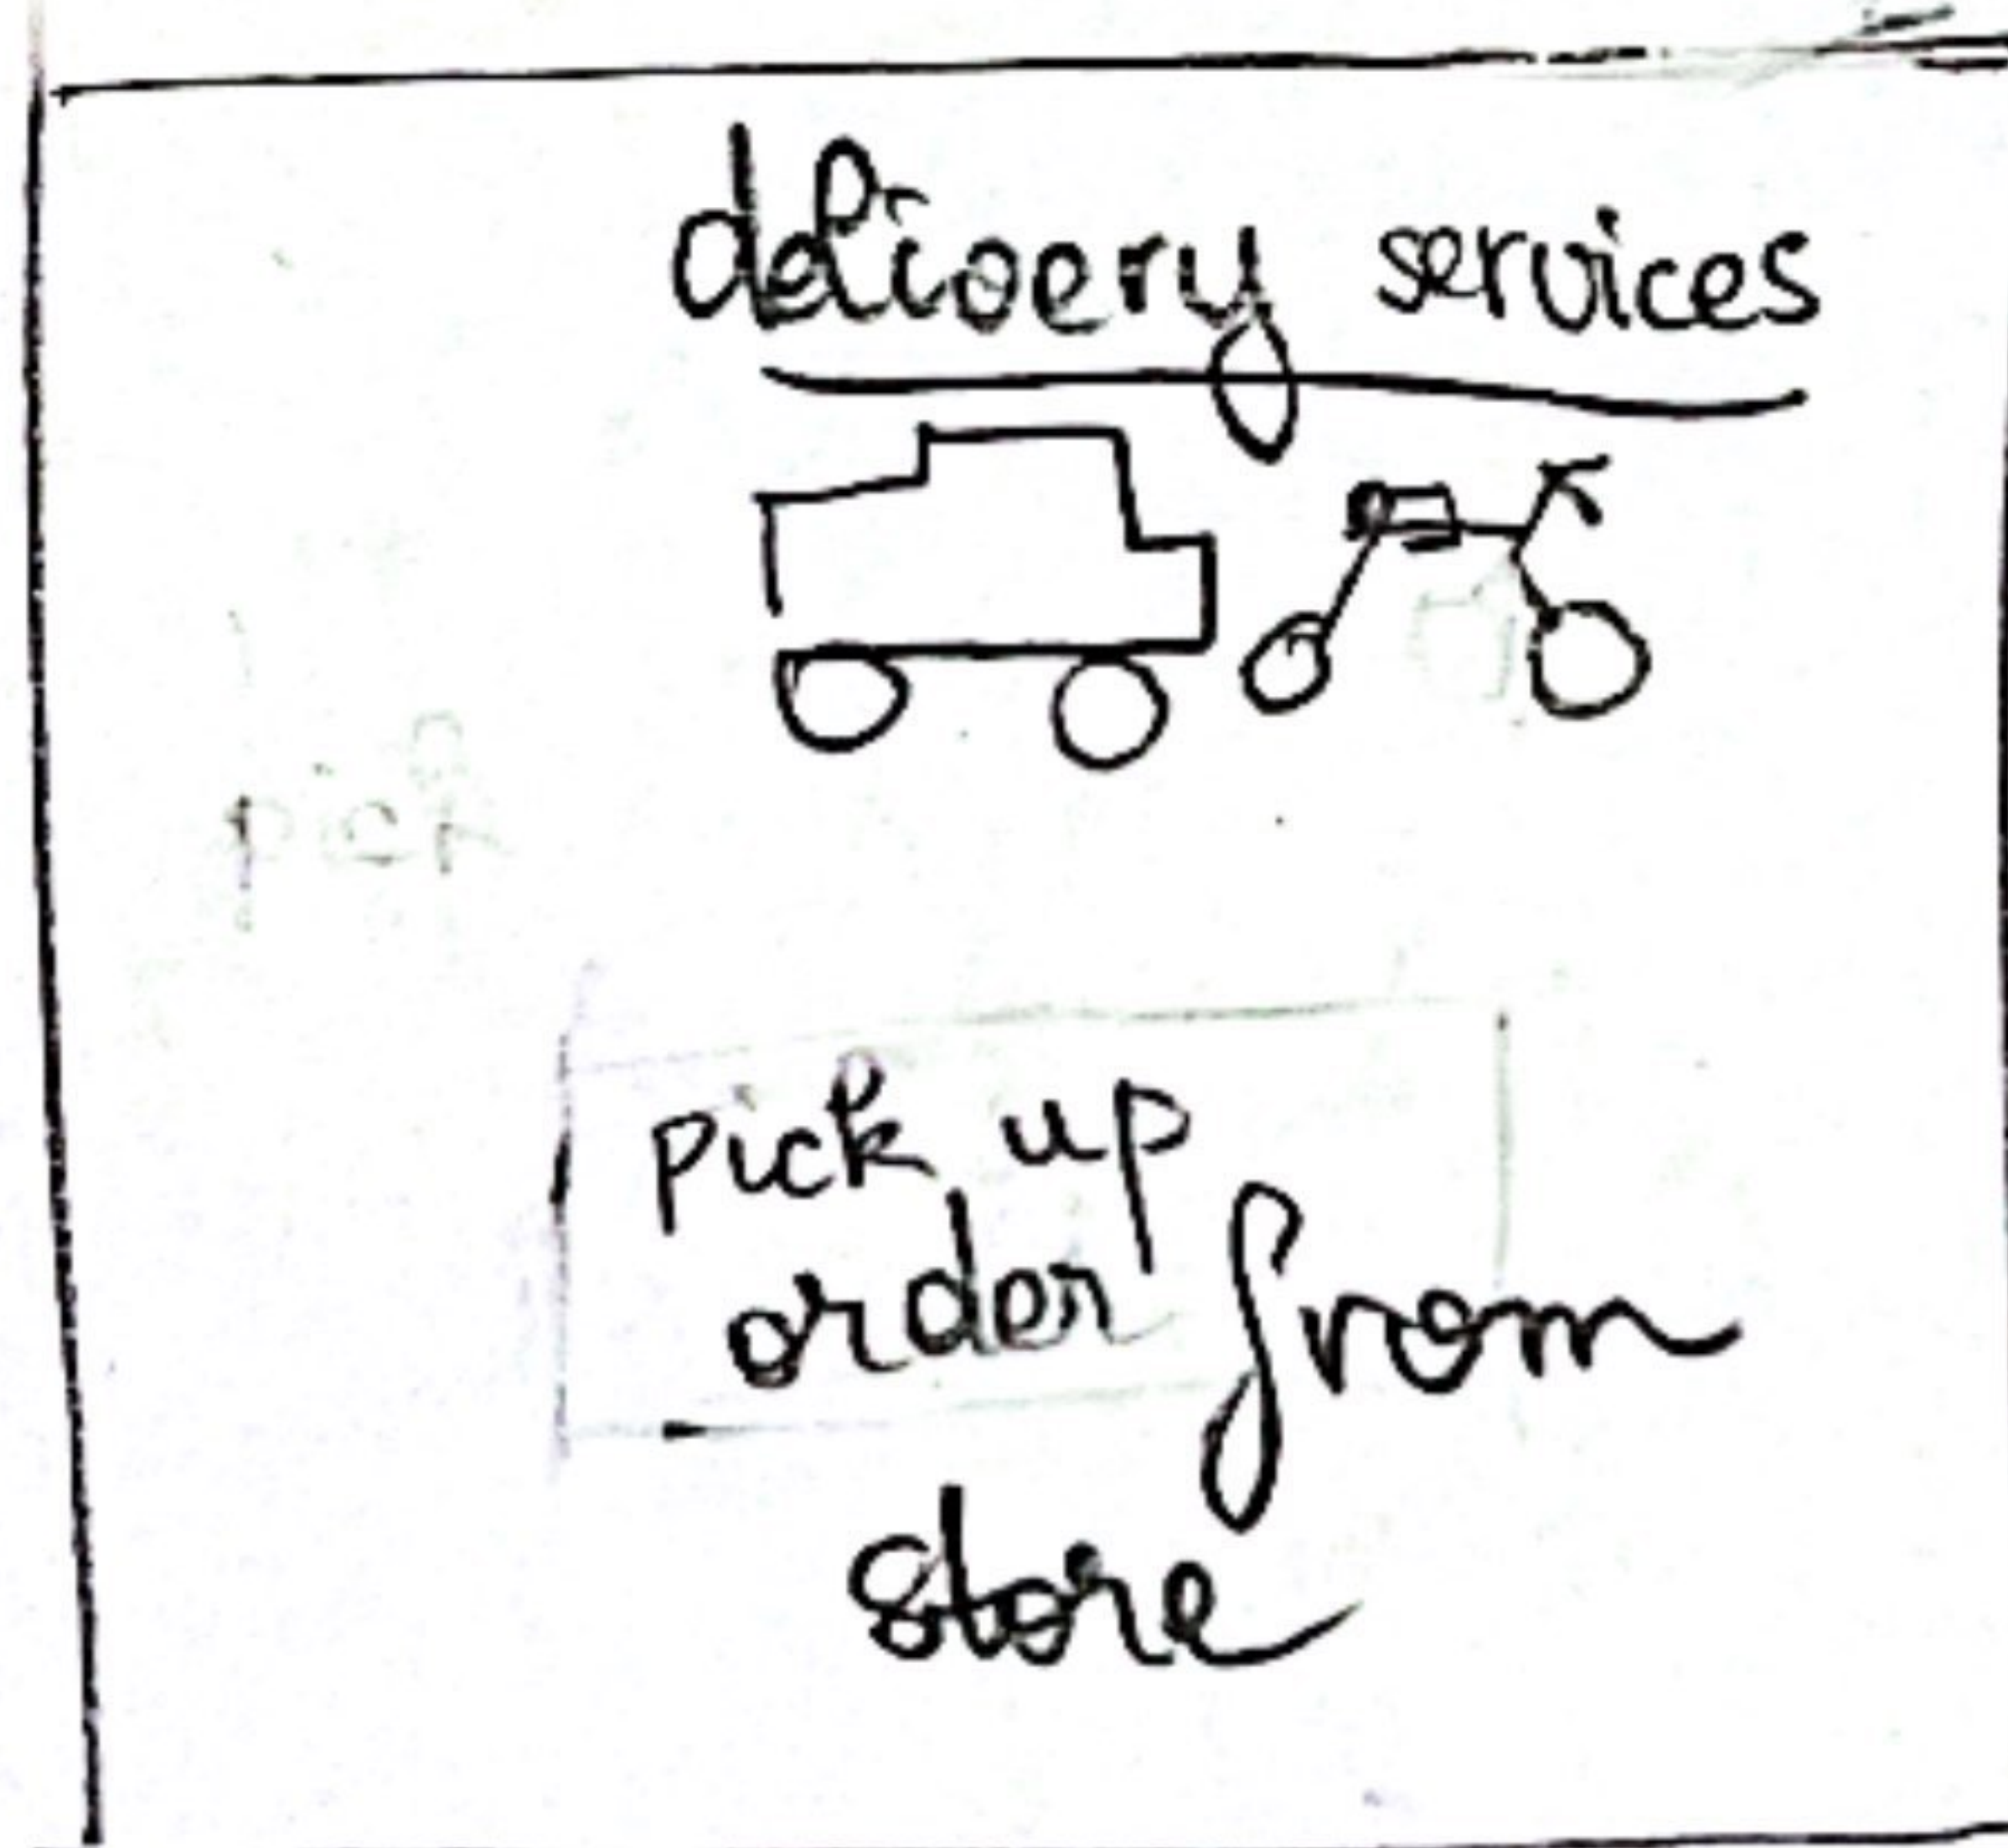 delivery services
pick up
order from
store